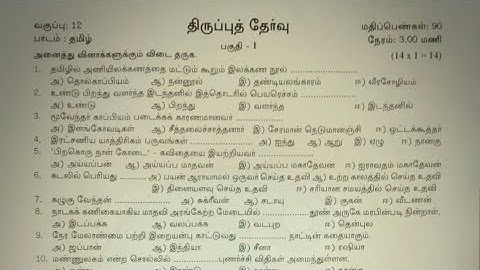 வகுப்பு: 12 திருப்புத் தேர்வு மதிப்பெண்கள்: 90
பாடம் : தமிழ் பகுதி - I நேரம்: 3.00 மணி
அனைத்து வினாக்களுக்கும் விடை தருக. (14 x 1 = 14)
1. தமிழில் அணியிலக்கணத்தை மட்டும் கூறும் இலக்கண நூல்
அ) தொல்காப்பியம் ஆ) நன்னூல் இ) தண்டியலங்காரம் ஈ) வீரசோழியம்
2. உண்டு பிறந்து வளர்ந்த இடந்தனில் இத்தொடரில் பெயரெச்சம்
அ) உண்டு ஆ) பிறந்து இ) வளர்ந்த ஈ) இடந்தனில்
3. மூவேந்தர் காப்பியம் படைக்கக் காரணமானவர்
அ) இளங்கோவடிகள் ஆ) சீத்தலைச்சாத்தனார் இ) சேரமான் நெடுமானஞ்சி ஈ) ஒட்டக்கூத்தர்
4. இரட்சணிய யாத்திரிகம் பருவங்கள் அ) ஐந்து ஆ) ஆறு இ) ஏழு ஈ) நான்கு
5. 'பிறகொரு நாள் கோடை' - கவிதையை இயற்றியவர்
அ) அய்யப்பன் ஆ) அய்யப்ப மாதவன் இ) அய்யப்ப மகாதேவன் ஈ) ஐராவதம் மகாதேவன்
6. கடலில் பெரியது அ) பயன் ஆராயாமல் ஒருவர் செய்த உதவி ஆ) உற்ற காலத்தில் செய்த உதவி
இ) தினையளவு செய்த உதவி ஈ) சரியான சமயத்தில் செய்த உதவி
7. கழுகு வேந்தன் அ) சுக்ரீவன் ஆ) சடாயு இ) குகன் ஈ) வீடணன்
8. நாடகக் கணிகையாகிய மாதவி அரங்கேற்ற மேடையில் தூண் அருகே மரபின்படி நின்றாள்.
அ) இடப்பக்க ஆ) வலப்பக்க இ) வடபுற ஈ) தென்புல
9. நேர மேலாண்மை பற்றி இறையன்பு காட்டுவது நாட்டின் கதையாகும்.
அ) ஜப்பான் ஆ) இந்தியா இ) சீனா ஈ) ரஷியா
10. மண்ணுலகம் என்ற சொல்லில் புணர்ச்சி விதிகள் அமைந்துள்ளன.